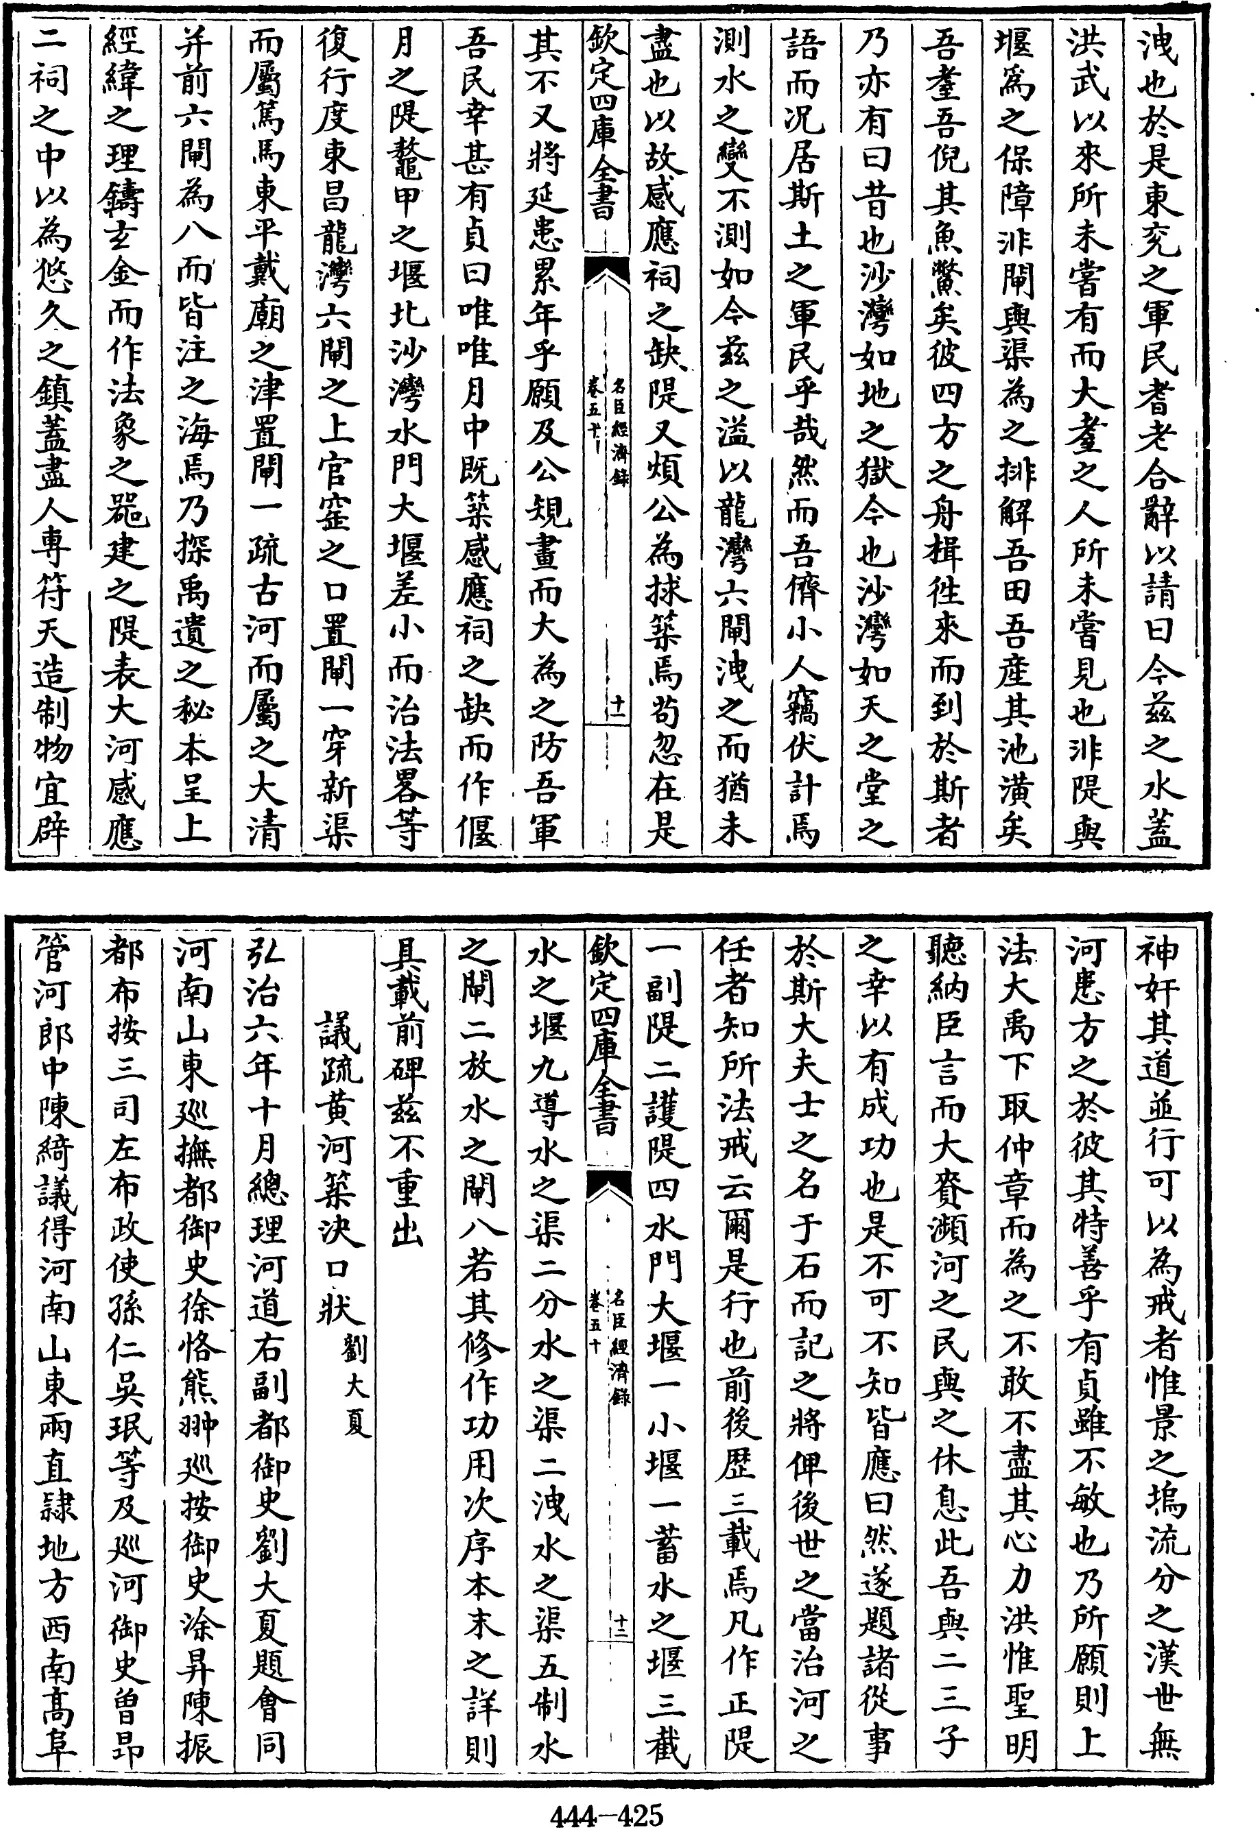 洩也於是東兖之軍民耆老合辭以請曰今兹之水蓋
洪武以來所未嘗有而大耋之人所未嘗見也非隄與
堰爲之保障非閘與渠為之排解吾田吾産其池潢矣
吾耋吾倪其魚鱉矣彼四方之舟楫徃來而到於斯者
乃亦有曰昔也沙灣如地之獄今也沙灣如天之堂之
語而况居斯土之軍民乎哉然而吾儕小人竊伏計焉
測水之變不測如今兹之溢以龍灣六閘洩之而猶未
盡也以故感應祠之缺隄又煩公為捄築焉茍忽在是
欽定四庫全書
名臣經濟録
卷五十
十一
其不又將延患累年乎願及公規畫而大為之防吾軍
吾民幸甚有貞曰唯唯月中既築感應祠之缺而作偃
月之隄鼇甲之堰北沙灣水門大堰差小而治法畧等
復行度東昌龍灣六閘之上官窑之口置閘一穿新渠
而屬篤馬東平戴廟之津置閘一疏古河而屬之大清
并前六閘為八而皆注之海焉乃探禹遺之秘本呈上
經緯之理鑄玄金而作法象之器建之隄表大河感應
二祠之中以為悠久之鎮蓋盡人専符天造制物宜辟
神奸其道並行可以為戒者惟景之塢流分之漢世無
河患方之於彼其特善乎有貞雖不敏也乃所願則上
法大禹下取仲章而為之不敢不盡其心力洪惟聖明
聽納臣言而大賚瀕河之民與之休息此吾與二三子
之幸以有成功也是不可不知皆應曰然遂題諸從事
於斯大夫士之名于石而記之將俾後世之當治河之
任者知所法戒云爾是行也前後歴三載焉凡作正隄
一副隄二護隄四水門大堰一小堰一蓄水之堰三截
欽定四庫全書
名臣經濟録
卷五十
十二
水之堰九導水之渠二分水之渠二洩水之渠五制水
之閘二放水之閘八若其修作功用次序本末之詳則
具載前碑兹不重出
議疏黄河築決口狀 劉大夏
弘治六年十月總理河道右副都御史劉大夏題會同
河南山東廵撫都御史徐恪熊翀廵按御史涂昇陳振
都布按三司左布政使孫仁吳珉等及廵河御史曽昂
管河郎中陳綺議得河南山東兩直隷地方西南髙阜
444-425